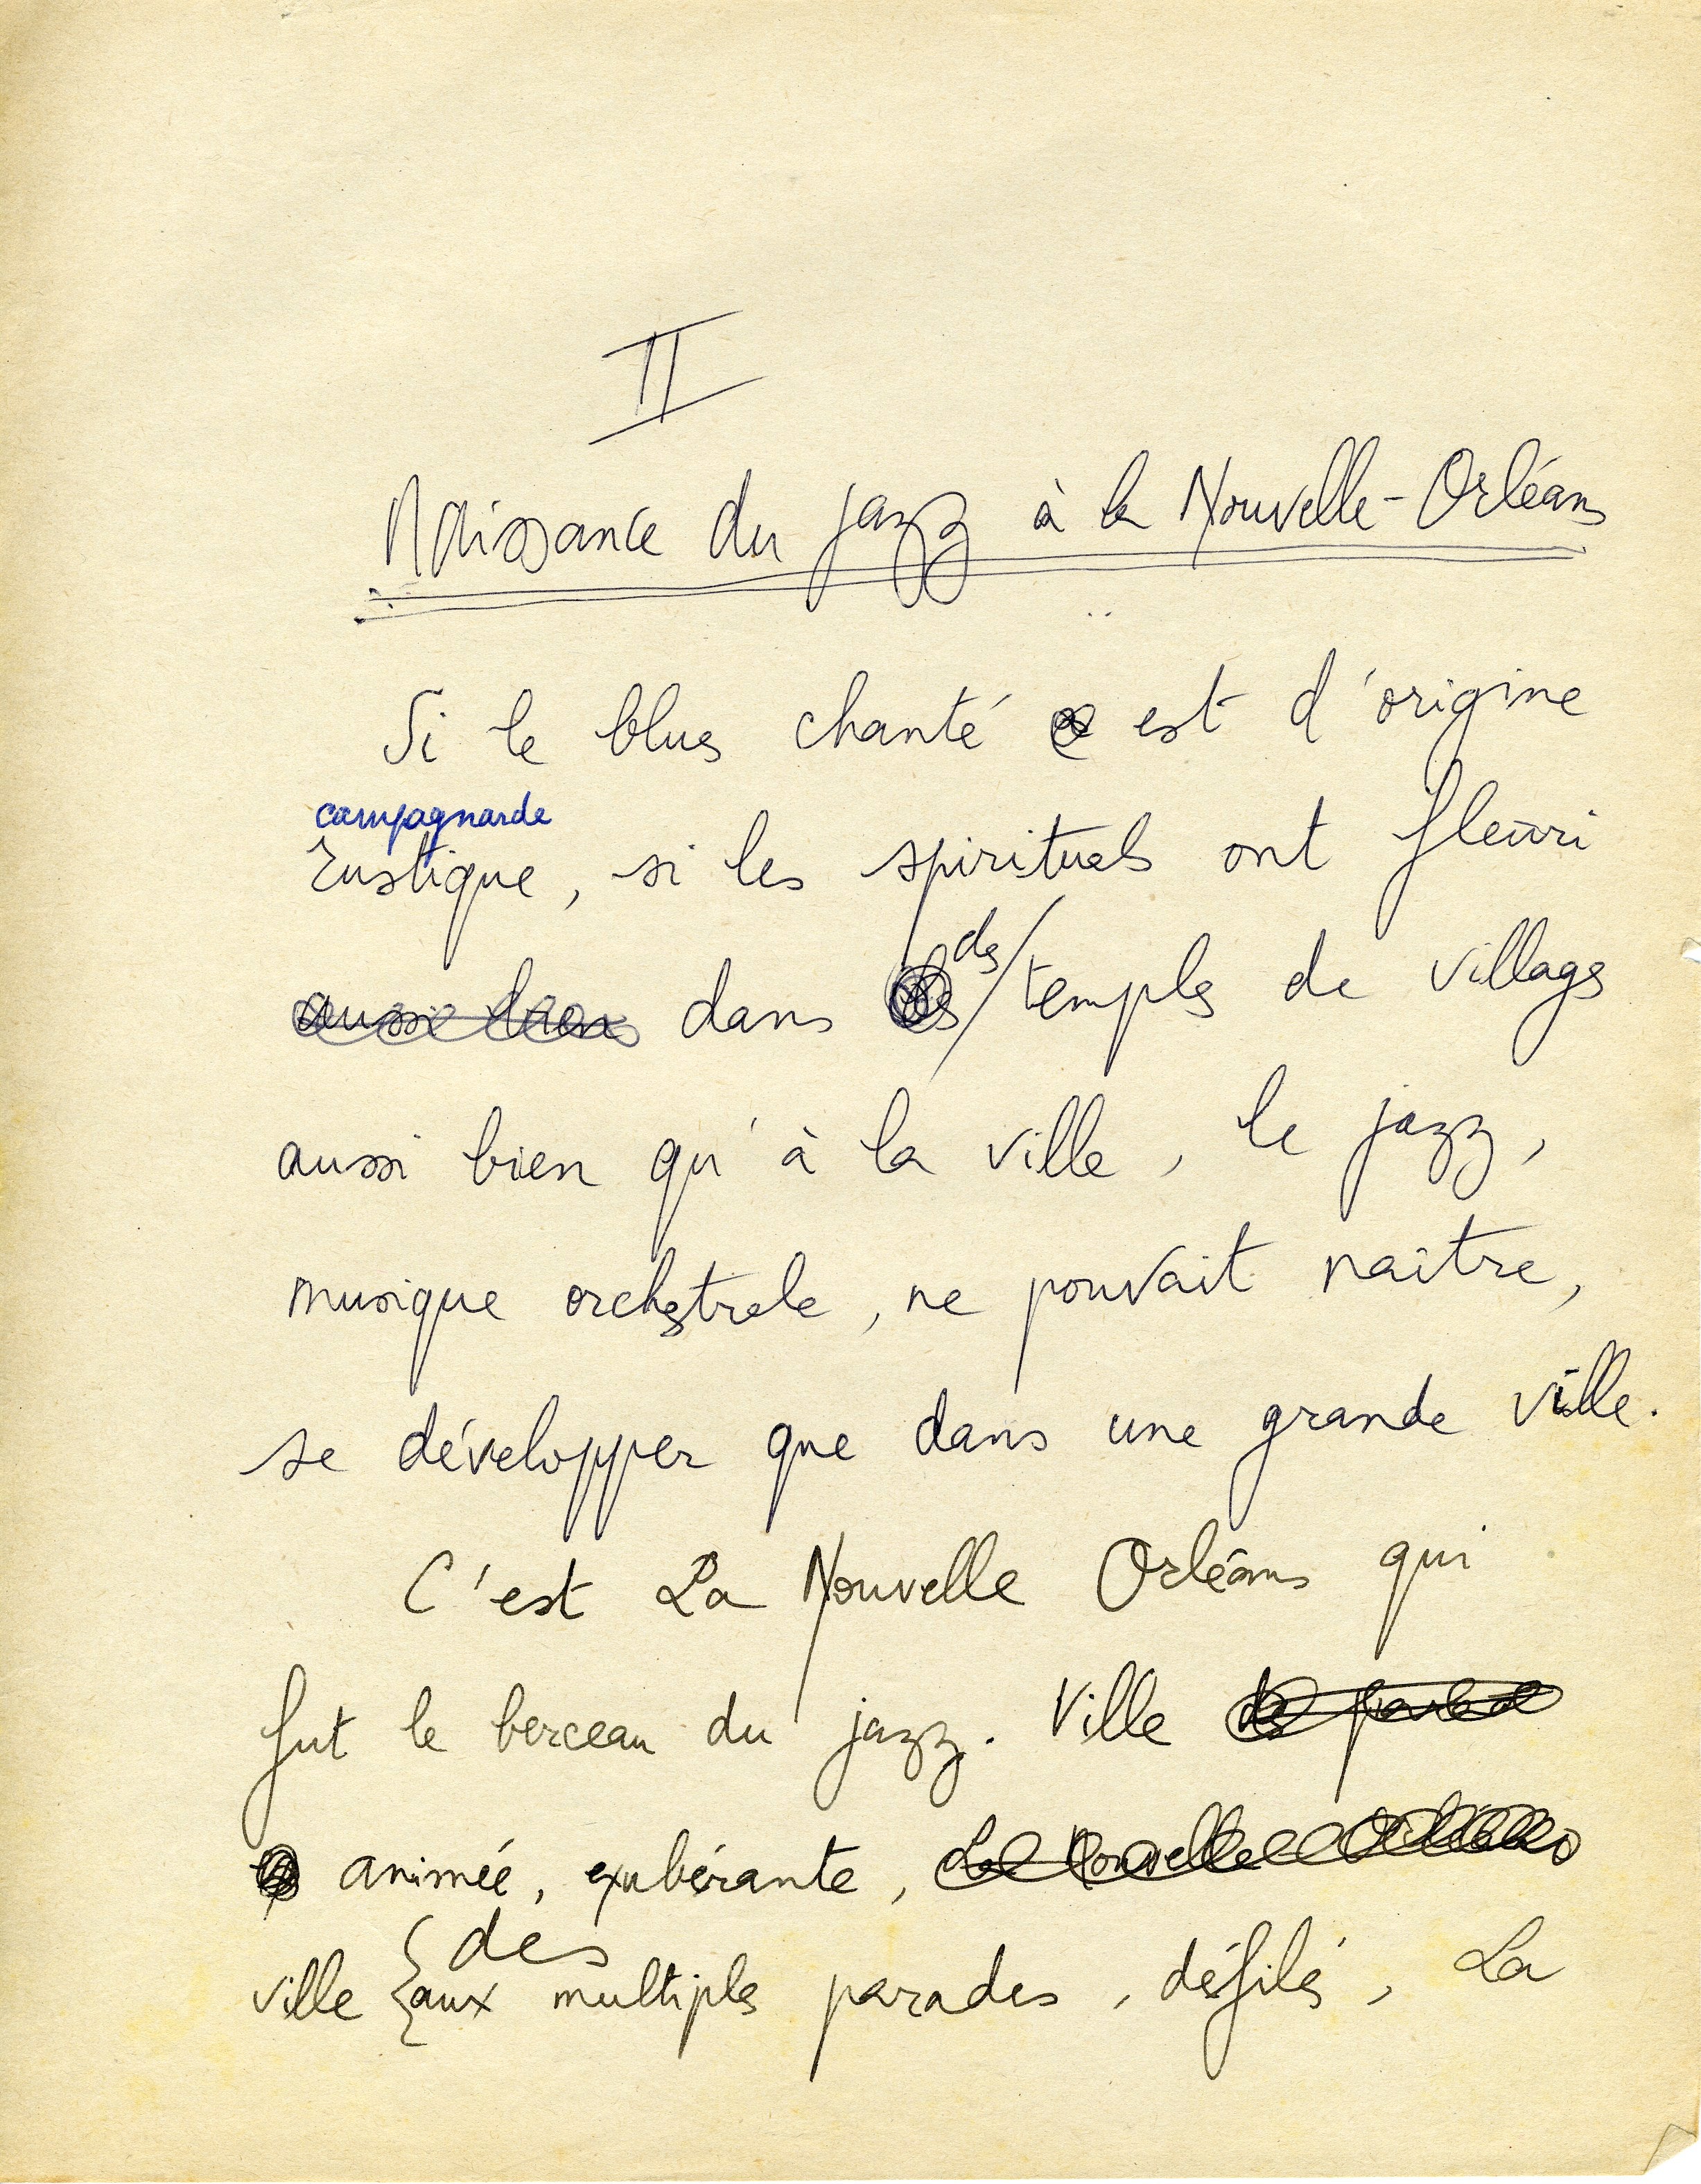 II
Naissance du jazz à la Nouvelle-Orléans
Si le blues chanté est d'origine
campagnarde
rustique, si les spirituals ont fleuri
des
aussi bien dans les temples de villages
aussi bien qu'à la ville, le jazz,
musique orchestrale, ne pouvait naître,
se développer que dans une grande ville.
C'est La Nouvelle Orléans qui
fut le berceau du jazz. Ville
animée, exubérante, La Nouvelle Orléans
des
ville aux multiples parades, défilés, La